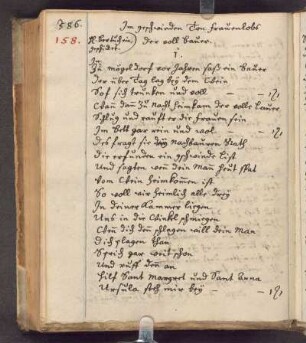 586.
Im geschwinden Ton Frauenlobs
158.
Der voll Bauer.
1.
Zu mögeldorf vor Jahren saß ein Bauer
Der über Tag lag bey dem Wein
Sof sich trunken und voll
Wan dan zu nacht heimkam der volle Lauer
Schlug und rauft er die frauen sein
Im Bett gar rein und wol
Des fragt sie drey Nachbauren Rath
die erfunden ein geschwinde list
Und sagten wen dein Man heut spat
Vom Wein heimkomen ist
So woll wir heimlich alle drey
In deiner Kammer ligen
Uns in die Winkl schmiegen
Wen dich den schlagen will dein Man
dich plagen than
Sprich gar weit schon
Und ruff den an
hilf Sant Margret und Sant Anna
Ursula steh mir bey